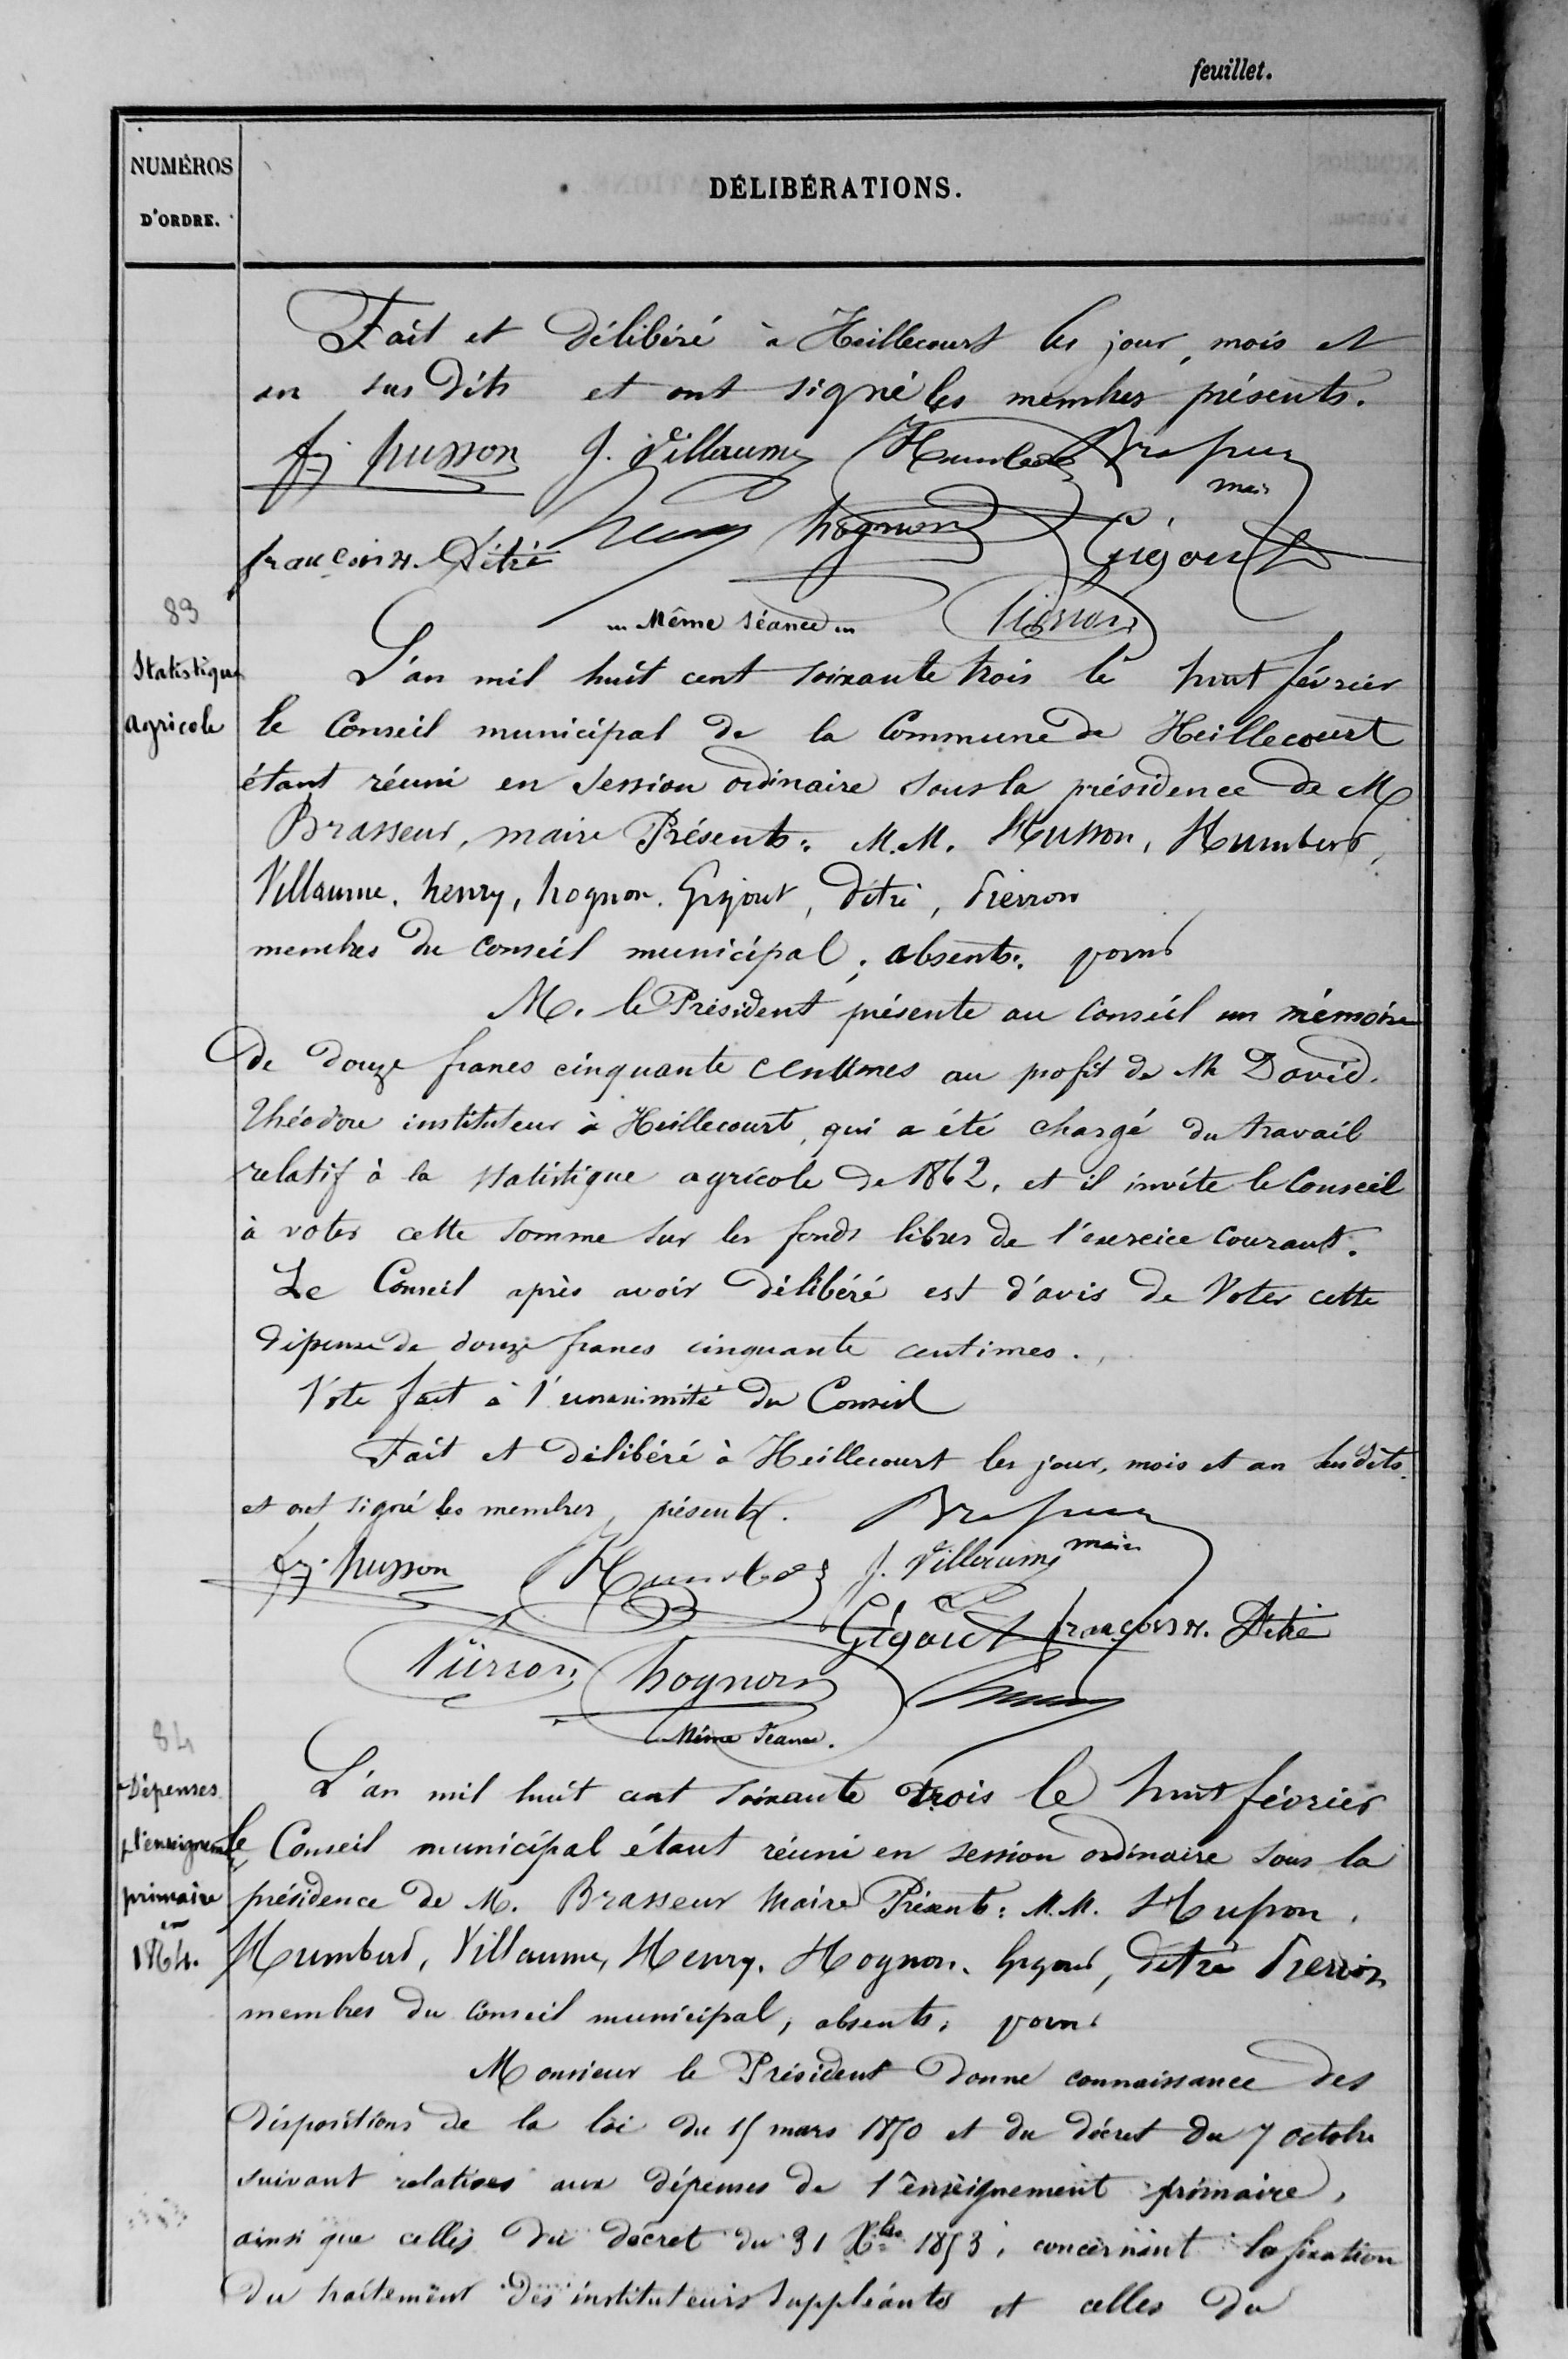 feuillet.
NUMÉROS
D'ORDRE.
DÉLIBÉRATIONS.
Fait et délibéré à Heillecourt les jour, mois et
an sus dits et ont signé les membres présents.
fj husson J. Villaume Humbert Brasseur
maire
françois H. Détré henry hognon Gigout
Pierron
83
Statistique
agricole
... Même séance ...
L'an mil huit cent soixante trois le huit février
le Conseil municipal de la Commune de Heillecourt
étant réuni en Session ordinaire sous la présidence de M
Brasseur, maire Présents: M.M. Husson, Humbert,
Villaume, henry, hognon, Gigout, détré, Pierron
membres du Conseil municipal; absents: point
M. le Président présente au Conseil un mémoire
de douze francs cinquante centimes au profit de M. David
Théodore instituteur à Heillecourt, qui a été chargé du travail
relatif à la statistique agricole de 1862, et il invite le Conseil
à voter cette somme sur les fonds libres de l'exercice courant.
Le Conseil après avoir délibéré est d'avis de voter cette
dépense de douze francs cinquante centimes.
Vote fait à l'unanimité du Conseil
Fait et délibéré à Heillecourt les jour, mois et an susdits
et ont signé les membres présents. Brasseur
maire
fj. husson Humbert J. Villaume
Gigout françois H. Détré
Pierron hognon henry
Même séance.
84
Dépenses
p. l'enseignemt
primaire
en
1864.
L'an mil huit cent soixante trois le huit février
le Conseil municipal étant réuni en session ordinaire sous la
présidence de M. Brasseur Maire Présents: M.M. Husson,
Humbert, Villaume, Henry, Hognon, Gigout, détré Pierron
membres du Conseil municipal, absents: point
Monsieur le Président donne connaissance des
dispositions de la loi du 15 mars 1850 et du décret du 7 octobre
suivant relatives aux dépenses de l'enseignement primaire,
ainsi que celles du décret du 31 Xbre 1853, concernant la fixation
du traitement des instituteurs suppléants et celles du